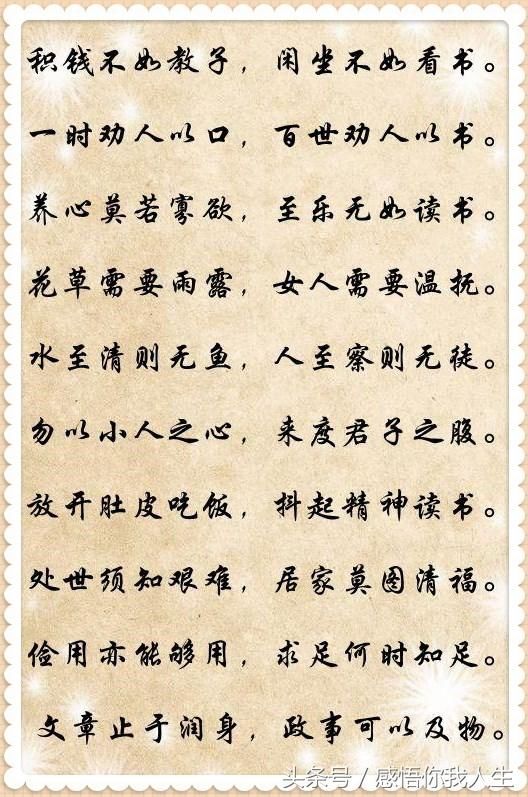 积钱不如教子，闲坐不如看书。
一时劝人以口，百世劝人以书。
养心莫若寡欲，至乐无如读书。
花草需要雨露，女人需要温抚。
水至清则无鱼，人至察则无徒。
勿以小人之心，来度君子之腹。
放开肚皮吃饭，抖起精神读书。
处世须知艰难，居家莫图清福。
俭用亦能够用，求足何时知足。
文章止于润身，政事可以及物。
头条号／感悟你我人生